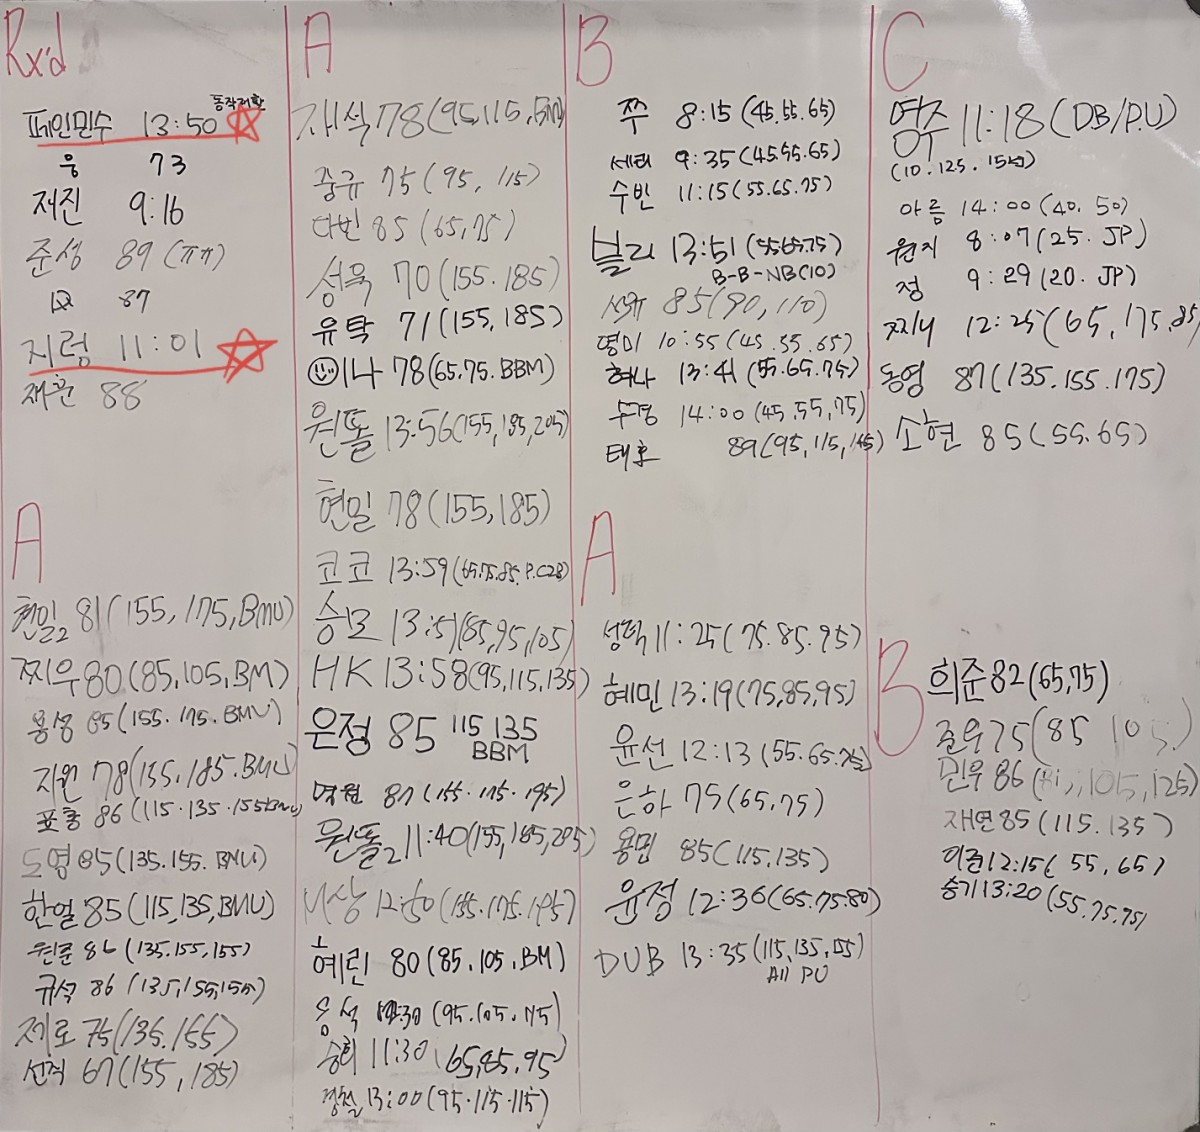 Rx'd
동작전환
페인민수 13:50
웅 73
저진 9:16
준성 89 (ππ)
87
지렁 11:01
재훈 88
A
현일2 81(155, 175, BMU)
찌우 80(85,105,BM)
용성 85(155.175.BMU)
지원 78(155.185.BMU)
표충 86(115.135.155BMU)
도영 85(135.155.BMU)
한얼 85(115,135,BMU)
원준 86(135,155,155)
규석 86(135,155,155)
제로 75(135.155)
선직 67(155,185)
A
재석 78(95,115,BM)
중규 75(95, 115)
다빈 85(65,75)
성욱 70(155.185)
유탁 71(155,185)
이나 78(65.75.BBM)
원똘 13:56(155,185,205)
현밀 78(155,185)
코코 13:59(65.75.85.P.C2B)
승모 13:51(85,95,105)
HK 13:58(95,115,135)
은정 85 115 135
BBM
87(155.175.195)
원똘2 11:40(155,185,205)
12:50(155.175.195)
혜린 80(85.105.BM)
(95.105.115)
승희 11:30(65,85,95)
경철 13:00(95.115.115)
B
쭈 8:15(45.55.65)
세리 9:35(45.55.65)
수빈 11:15(55.65.75)
블리 13:51(55.65.75)
B-B-NB(10)
85(90,110)
영미 10:55(45.55.65)
혜나 13:41(55.65.75)
수경 14:00(45,55,75)
태호 89(95,115,145)
A
성혁 11:25(75.85.95)
혜민 13:19(75,85,95)
윤선 12:13(55.65.75)
은하 75(65,75)
용명 85(115,135)
윤정 12:36(65.75.80)
DUB 13:35(115,135,155)
All PU
C
명주 11:18(DB/P.U)
(10.12.5.15)
아름 14:00(40.50)
원지 8:07(25. JP)
정 9:29(20. JP)
찌니 12:25(65,75,85)
동영 87(135.155.175)
소현 85(55.65)
B
희준 82(65,75)
준우 75(85 105)
민우 86(105,125)
재연 85(115.135)
이준 12:15(55,65)
승기 13:20(55.75.75)